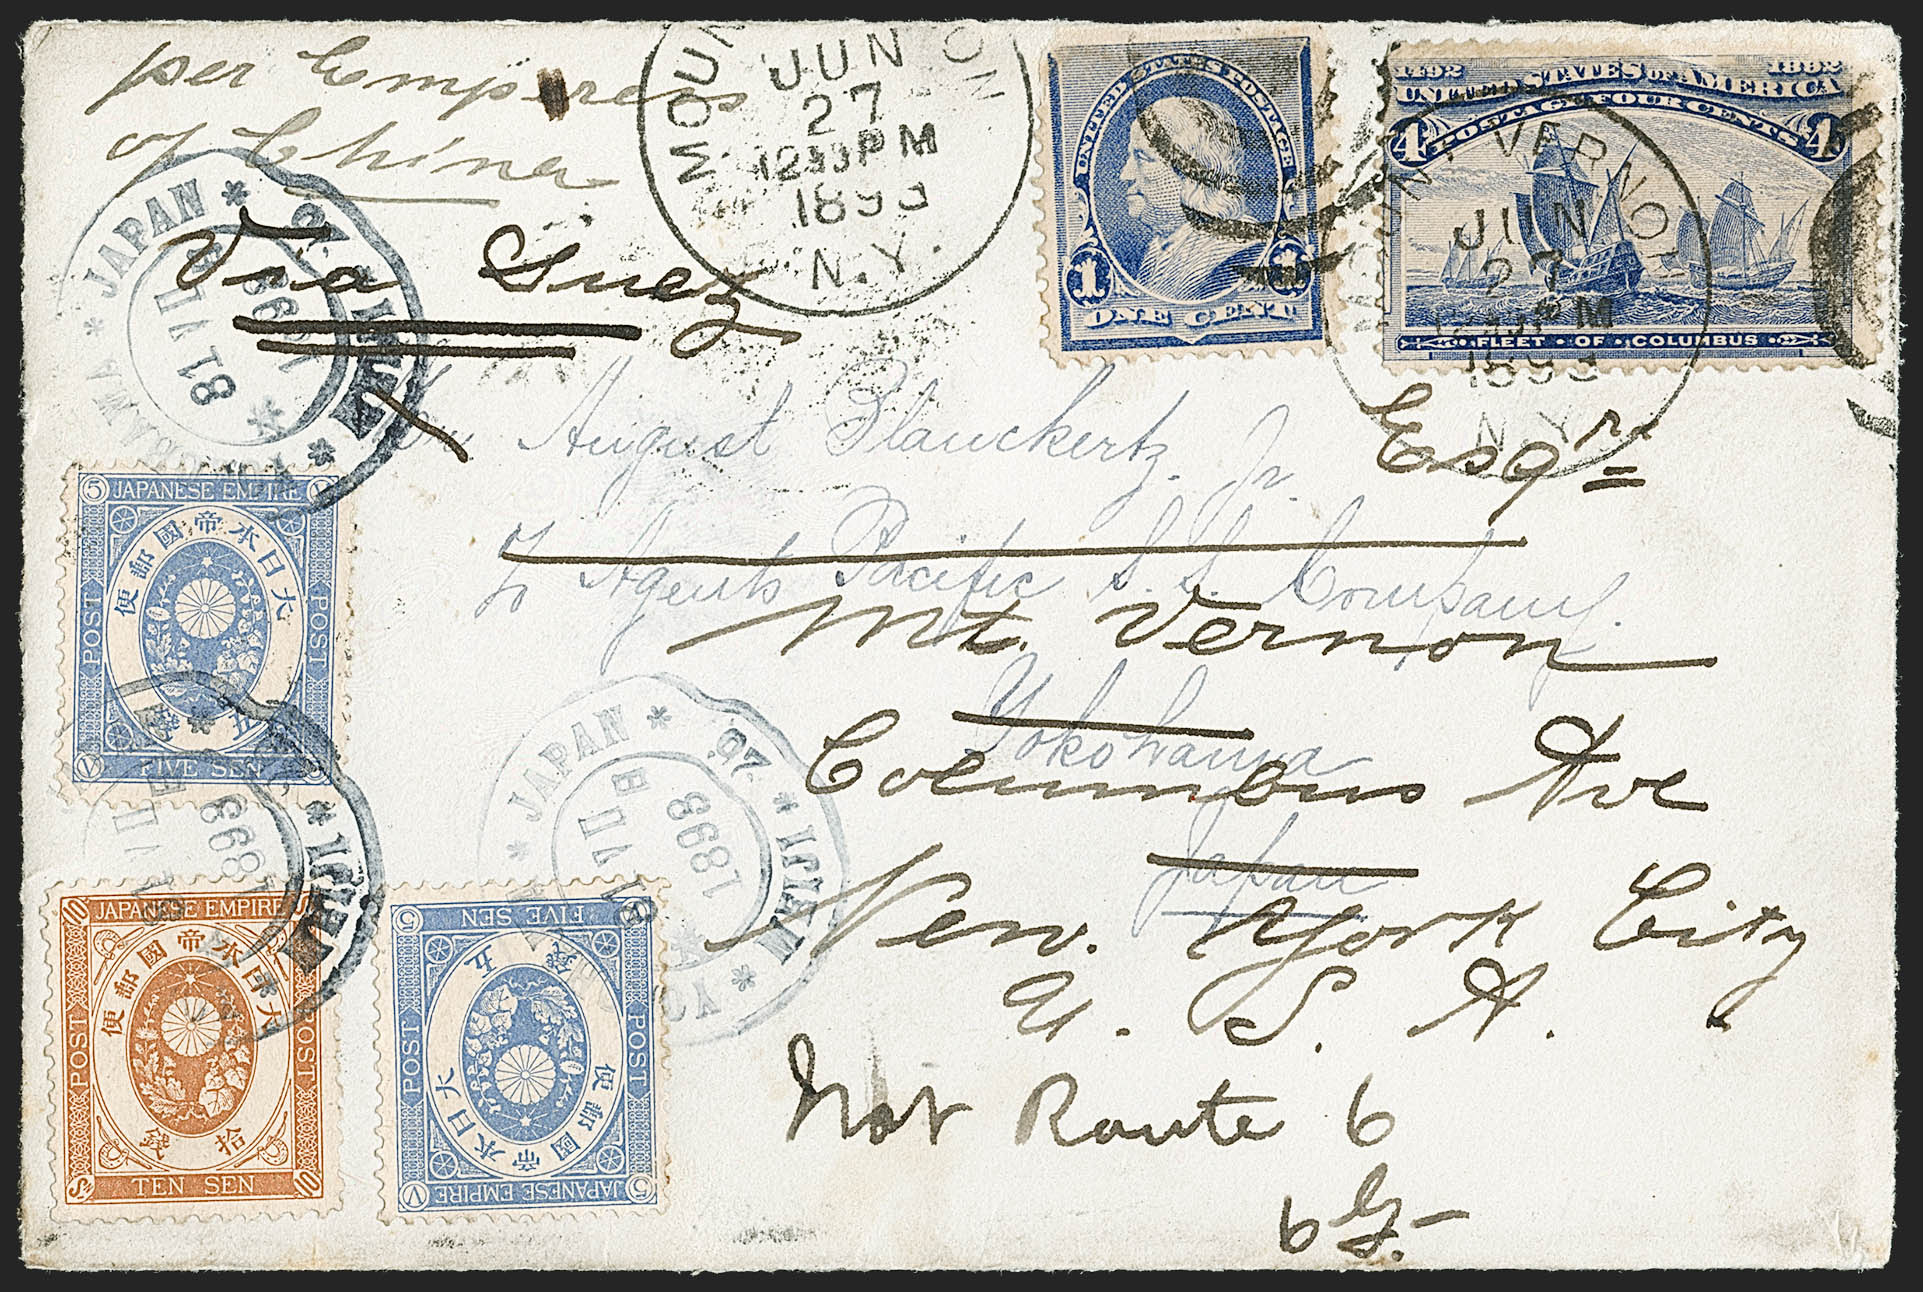 per Empress
of China
Via Suez
MOUN ON
JUN
27
1230PM
1893
N.Y.
UNITED STATES POSTAGE
1 1
ONE CENT
1492 1892
UNITED STATES OF AMERICA
POSTAGE FOUR CENTS
4 4
FLEET OF COLUMBUS
MOUNT VERNON
JUN
27
PM
1893
N.Y.
JAPAN
18 VII
1893
YOKOHAMA
Mr August Planckertz. Jr. Esqr
To Agents Pacific S. S. Company.
Mt. Vernon
Yokohama
Columbus Ave
Japan
New. York City
U. S. A.
Not Route 6
6 G.
5 JAPANESE EMPIRE V
大日本帝國郵便
POST POST
五錢
V FIVE SEN 5
JAPAN
VII
1893
10 JAPANESE EMPIRE
大日本帝國郵便
POST POST
拾錢
TEN SEN 10
5 FIVE SEN V
五錢
POST POST
大日本帝國郵便
V JAPANESE EMPIRE 5
JAPAN
VII
1893